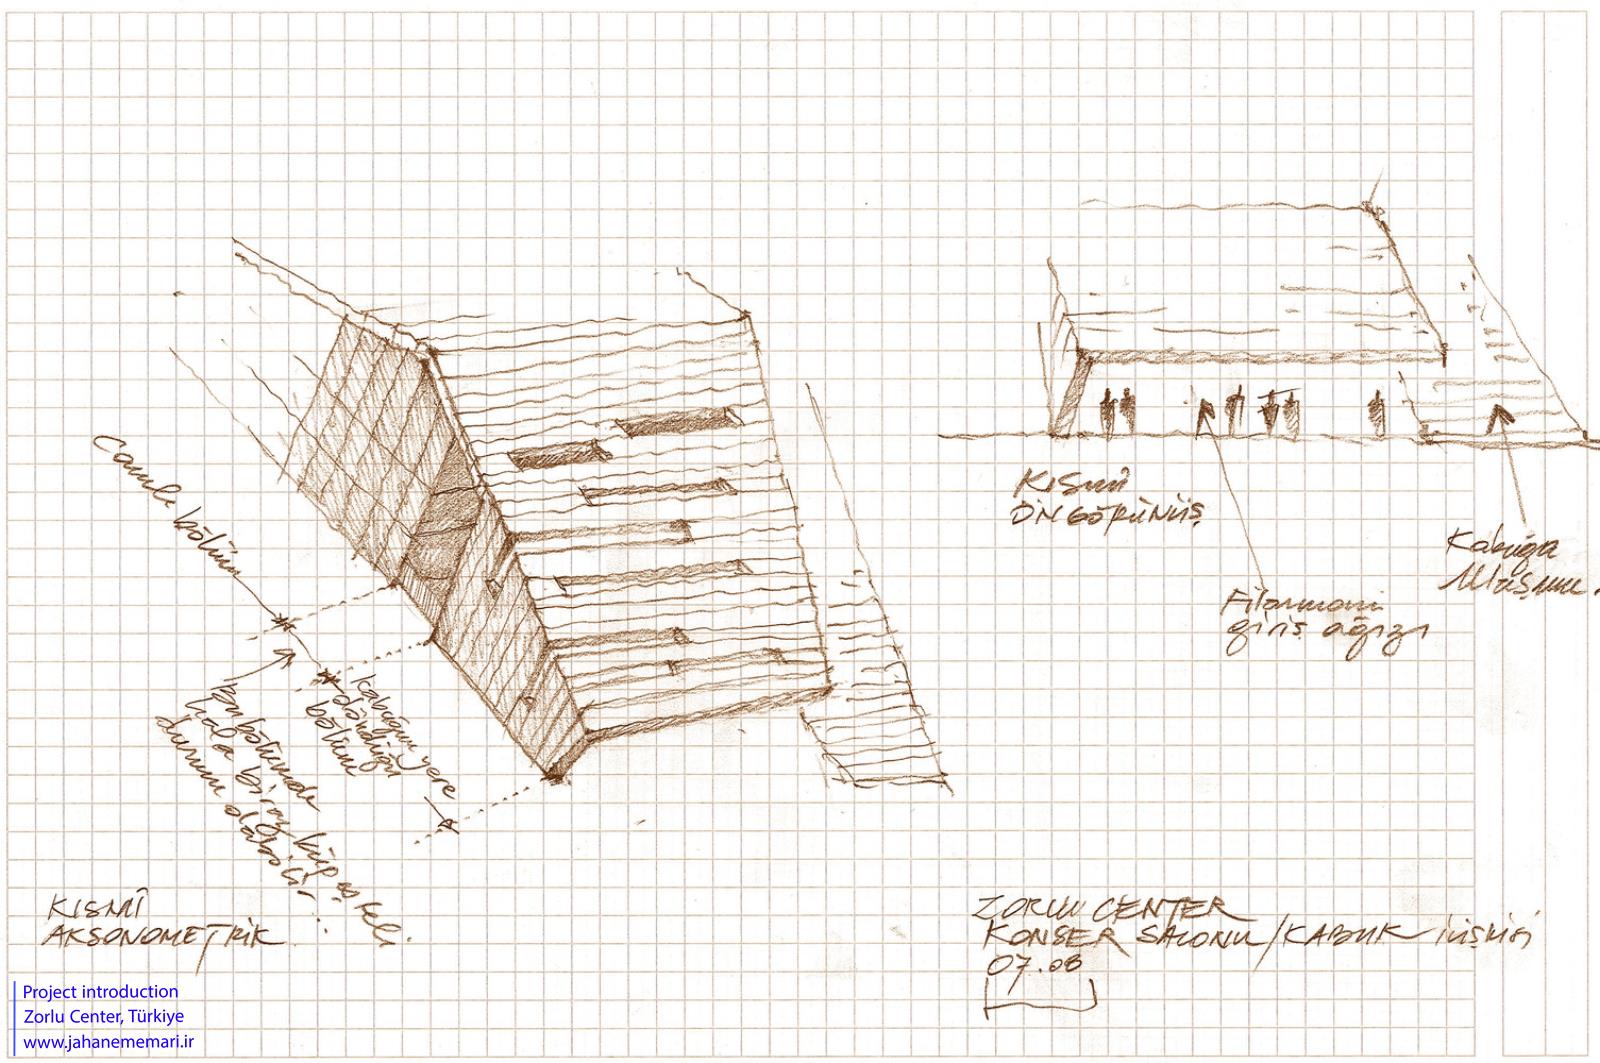 Camlı bölüm
Kabuğun yere
döndüğü
bölümü
Bu bölümde
hala biraz küp
durum olabilir...
KISMÎ
AKSONOMETRİK
KISMÎ
ÖN GÖRÜNÜŞ
Filarmoni
giriş ağızı
Kabuğa
ZORLU CENTER
KONSER SALONU/KABUK ilişkisi
07.08
Project introduction
Zorlu Center, Türkiye
www.jahanememari.ir